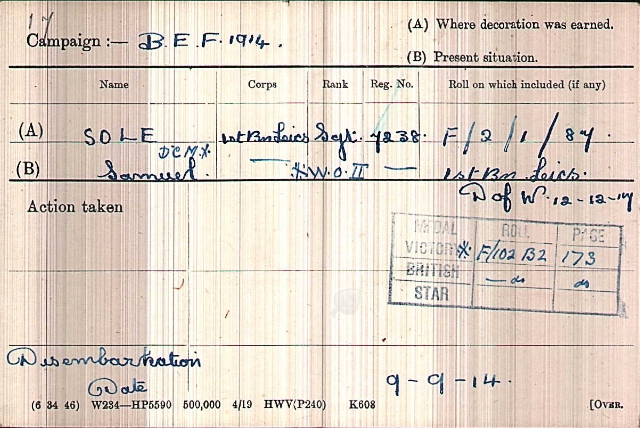 17
(A) Where decoration was earned.
Campaign :— B.E.F. 1914.
(B) Present situation.
Name Corps Rank Reg. No. Roll on which included (if any)
(A) SOLE 1st Bn Leics Sgt. 7238. F/2/1/87.
DCM.*
(B) Samuel. — *W.O.II — 1st Bn Leics.
D of W. 12-12-17
Action taken
MEDAL ROLL PAGE
VICTORY * F/102 B2 173
BRITISH — do do
STAR
Disembarkation
Date 9-9-14.
(6 34 46) W234—HP5590 500,000 4/19 HWV(P240) K608 [OVER.